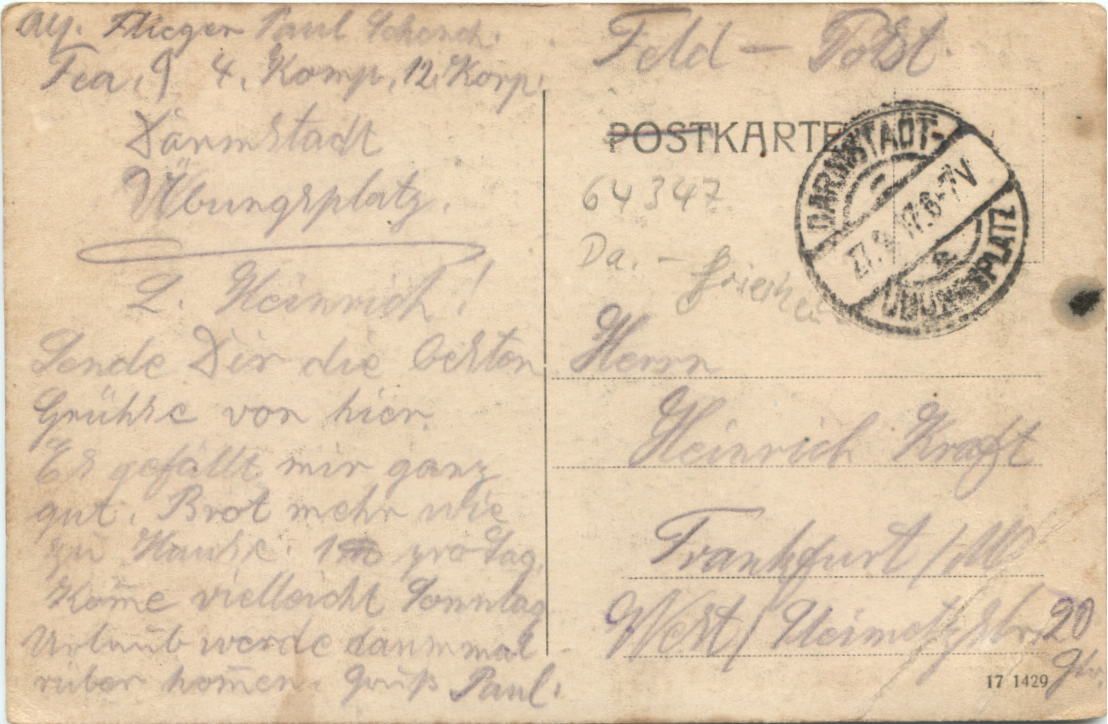 Flieger Paul Schorch.
Fea. 9 4. Komp. 12. Korp.
Darmstadt
Übungsplatz.
L. Heinrich!
Sende Dir die besten
Grühse von hier.
Es gefällt mir ganz
gut. Brot mehr wie
zu Hause. 1 pro Tag.
Kom̄e vielleicht Sonntag
Urlaub werde dannmal
rüber kom̄en. Gruß Paul.
Feld – Post
POSTKARTE
64347
Da. –
DARMSTADT-
17.6-7V
ÜBUNGSPLATZ
Herrn
Heinrich Kraft
Frankfurt /M
West / 20
17 1429